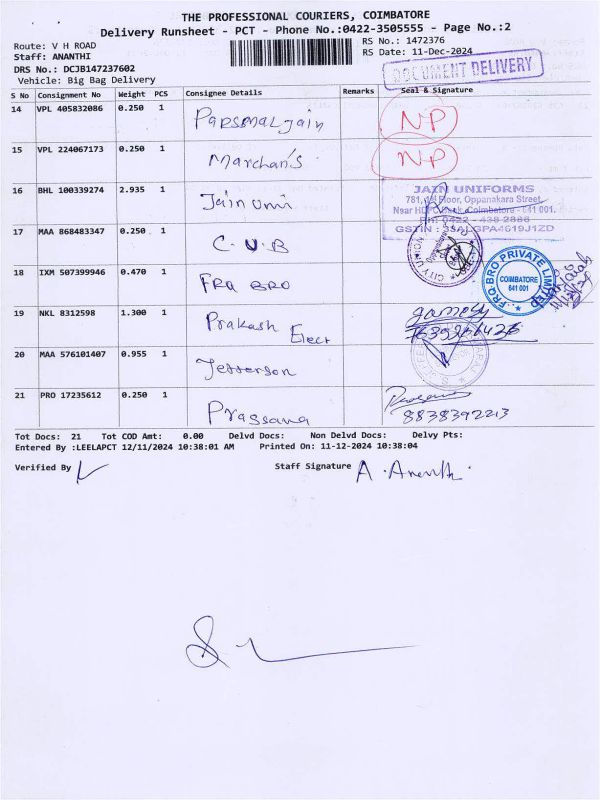 THE PROFESSIONAL COURIERS, COIMBATORE
Delivery Runsheet - PCT - Phone No.:0422-3505555 - Page No.:2
Route: V H ROAD
Staff: ANANTHI
DRS No.: DCJB147237602
Vehicle: Big Bag Delivery
RS No.: 1472376
RS Date: 11-Dec-2024
DOCUMENT DELIVERY
S No Consignment No Weight PCS Consignee Details Remarks Seal & Signature
14 VPL 405832086 0.250 1 Parsmal Jain NP
15 VPL 224067173 0.250 1 Marchan's NP
16 BHL 100339274 2.935 1 Jain Uni
JAIN UNIFORMS
781, 1st Floor, Oppanakara Street,
Near HDFC Bank, Coimbatore - 641 001.
Ph: 0422 - 438 2888
GSTIN : 33ALGPA4619J1ZD
17 MAA 868483347 0.250 1 C.U.B
CITY UNION
18 IXM 507399946 0.470 1 FRQ BRO
FRQ BRO PRIVATE LIMITED
COIMBATORE
641 001
19 NKL 8312598 1.300 1 Prakash Elect
20 MAA 576101407 0.955 1 Jefferson
21 PRO 17235612 0.250 1 Prassana
8838392213
Tot Docs: 21 Tot COD Amt: 0.00 Delvd Docs: Non Delvd Docs: Delvy Pts:
Entered By :LEELAPCT 12/11/2024 10:38:01 AM Printed On: 11-12-2024 10:38:04
Verified By
Staff Signature A. Ananthi